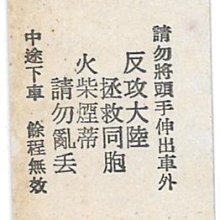 請勿將頭手伸出車外
反攻大陸
拯救同胞
火柴煙蒂
請勿亂丟
中途下車　餘程無效